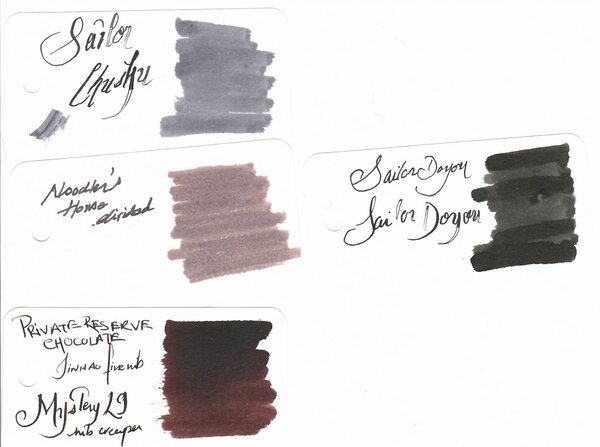 Sailor
Chushu
Noodler's
House
divided
Sailor Doyou
Sailor Doyou
PRIVATE RESERVE
CHOCOLATE
JINHAO fine nib
Mystery L9
nib creaper